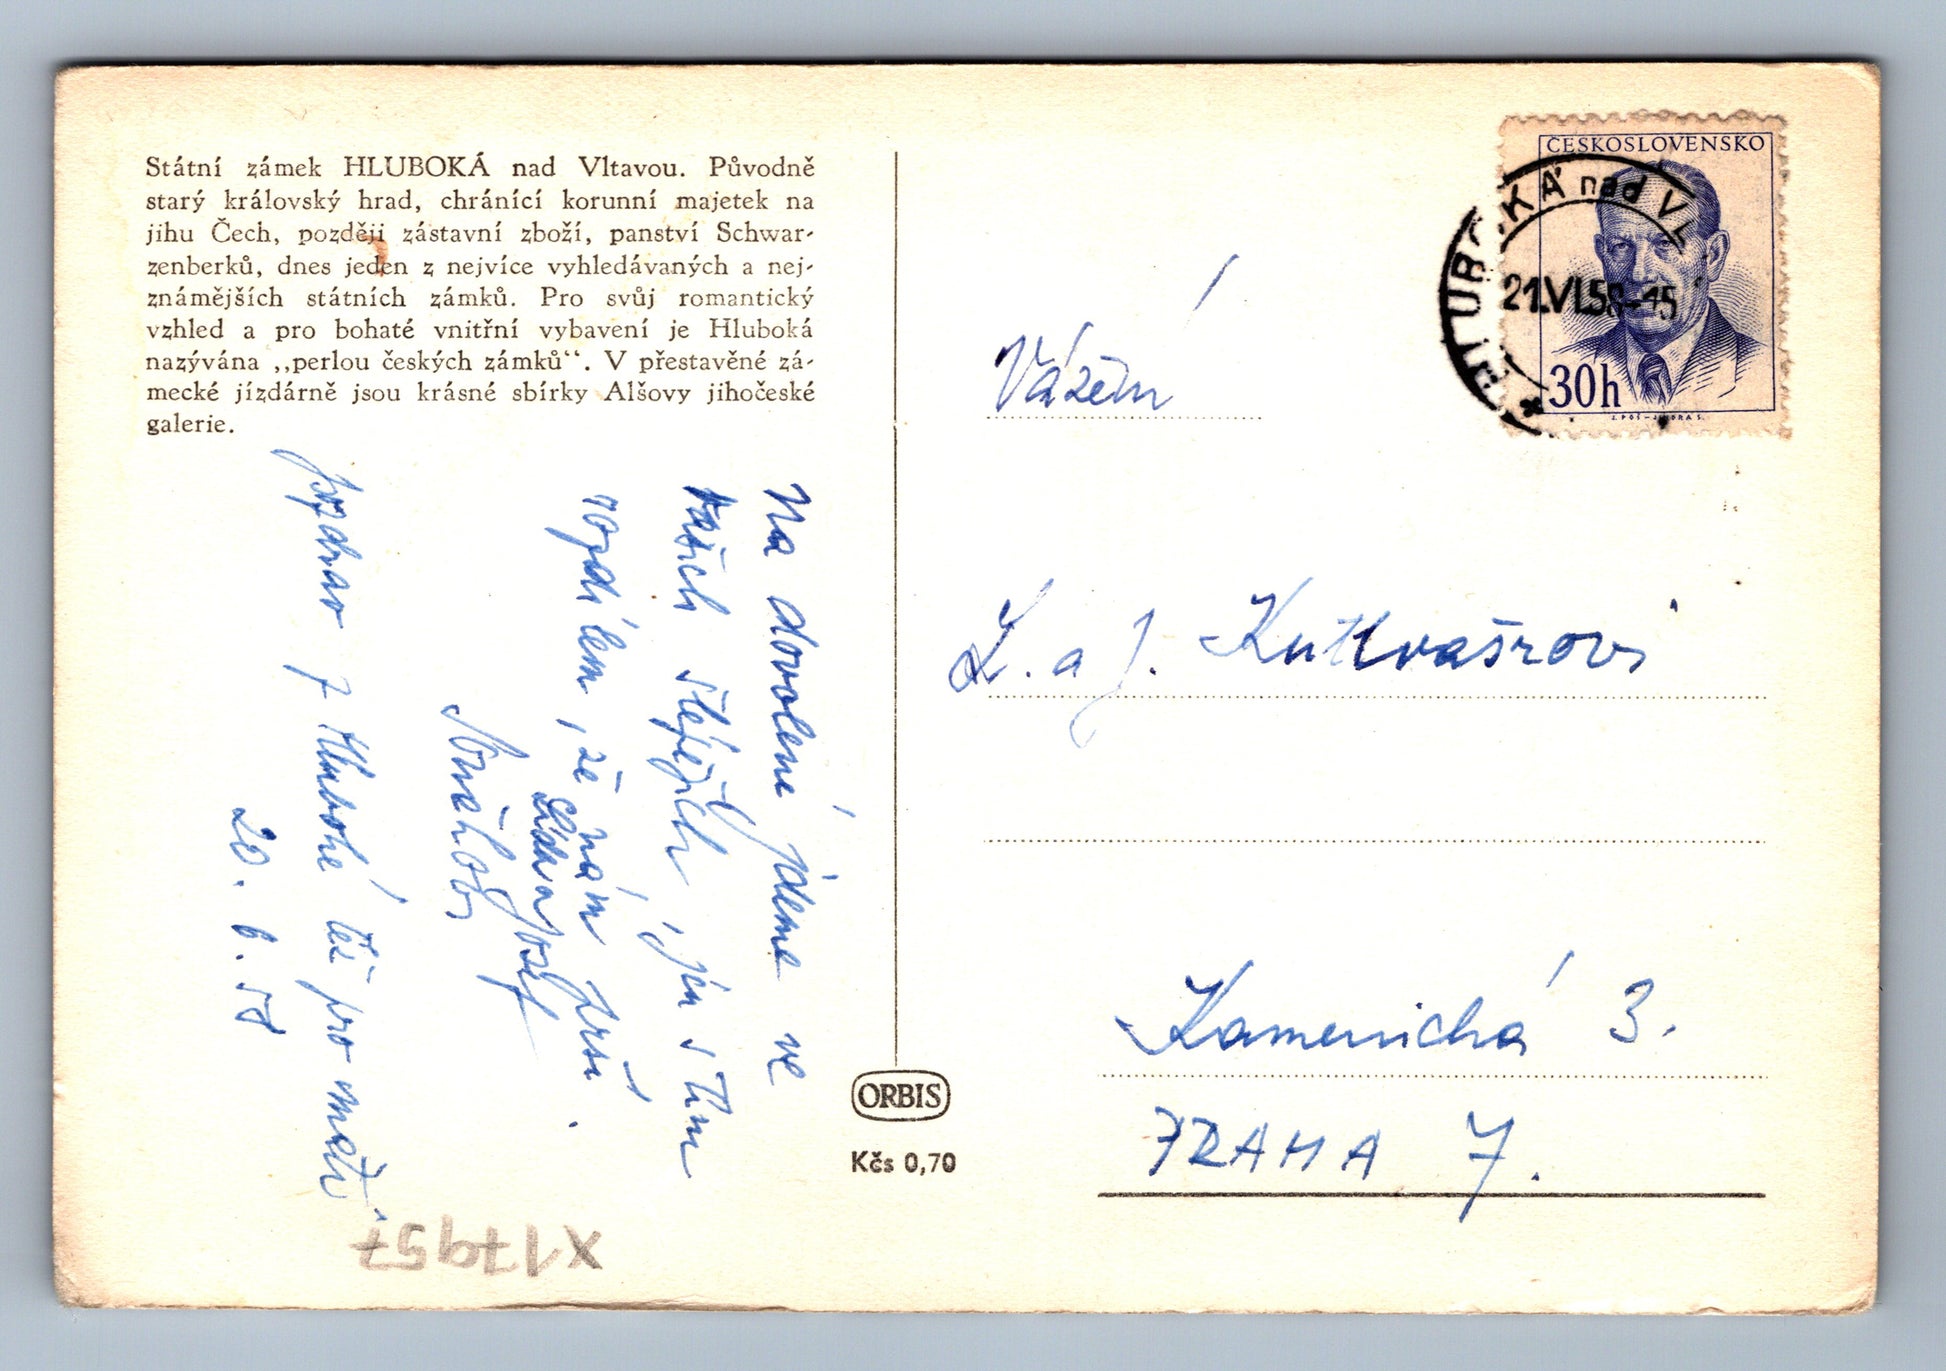 Státní zámek HLUBOKÁ nad Vltavou. Původně
starý královský hrad, chránící korunní majetek na
jihu Čech, později zástavní zboží, panství Schwar-
zenberků, dnes jeden z nejvíce vyhledávaných a nej-
známějších státních zámků. Pro svůj romantický
vzhled a pro bohaté vnitřní vybavení je Hluboká
nazývána „perlou českých zámků“. V přestavěné zá-
mecké jízdárně jsou krásné sbírky Alšovy jihočeské
galerie.
Na dovolené jdeme ve
Vašich šlépějích, jen s tím
rozdílem, že nám prší.
Josef
pozdrav z Hluboké též pro
20. 6. 58
X17957
ORBIS
Kčs 0,70
ČESKOSLOVENSKO
30h
HLUBOKÁ nad VL
21.VI.58-15
Vážení
L. a J. Kuttvašrovi
Kamenická 3.
PRAHA 7.